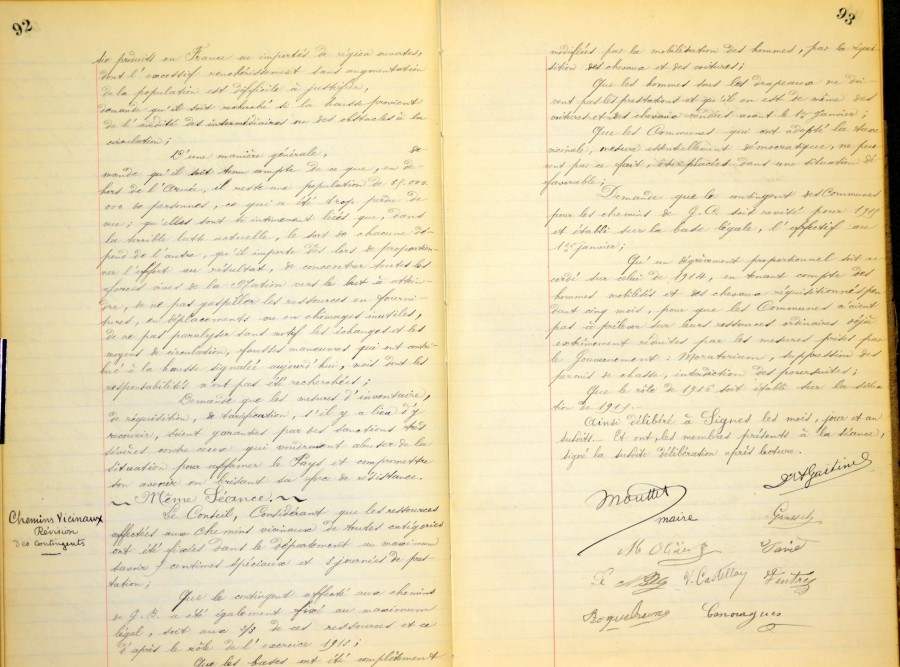 92
produits en France ou importés de région ouvertes,
dont l'excessif renchérissement sans augmentation
de la population est difficile à justifier,
demande qu'il soit recherché si la hausse provient
de l'avidité des intermédiaires ou des obstacles à la
circulation;
D'une manière générale, de-
mande qu'il soit tenu compte de ce que, en de-
hors de l'Armée, il reste une population de
000 de personnes, ce qui a été trop perdu de
vue; qu'elles sont si intimement liées que, dans
la terrible lutte actuelle, le sort de chacune dé-
pend de l'autre, qu'il importe dès lors de proportion-
ner l'effort au résultat, de concentrer toutes les
forces vives de la Nation vers le but à attein-
dre, de ne pas gaspiller les ressources en fourni-
tures, en déplacements ou en chômages inutiles,
de ne pas paralyser sans motif les échanges et les
moyens de circulation, fausses manœuvres qui ont contri-
bué à la hausse signalée aujourd'hui, mais dont les
responsabilités n'ont pas été recherchées;
Demande que les mesures d'inventaire,
de réquisition, de tarification, s'il y a lieu d'y
recourir, soient garanties par des sanctions très
sévères contre ceux qui oseraient abuser de la
situation pour affamer le Pays et compromettre
son avenir en brisant sa force de résistance.
~ Même Séance. ~
Chemins Vicinaux
Révision
des contingents
Le Conseil, Considérant que les ressources
affectées aux chemins vicinaux de toutes catégories
ont été fixées dans le département au maximum
savoir centimes spéciaux et journées de pres-
tation;
Que le contingent affecté aux chemins
de G. C. a été également fixé au maximum
légal, soit aux 2/3 de ces ressources et ce
d'après le rôle de l'exercice 1915;
Que les bases ont été complètement
93
modifiées par la mobilisation des hommes, par la réqui-
sition des chevaux et des voitures;
Que les hommes sous les drapeaux ne doi-
vent pas les prestations et qu'il en est de même des
voitures et des chevaux vendues avant le 1er Janvier;
Que les Communes qui ont adopté la taxe
vicinale, mesure essentiellement démocratique, ne peu-
vent pas de ce fait, être placées dans une situation dé-
favorable;
Demande que le contingent des Communes
pour les chemins de G. C. soit révisé pour 1915
et établi sur la base légale, l'effectif au
1er janvier;
Qu'un dégrèvement proportionnel soit ac-
cordé sur celui de 1914, en tenant compte des
hommes mobilisés et des chevaux réquisitionnés pen-
dant cinq mois, pour que les Communes n'aient
pas à prélever sur leurs ressources ordinaires déjà
extrêmement réduites par les mesures prises par
le Gouvernement: Moratorium, suppression des
permis de chasse, interdiction des poursuites;
Que le rôle de 1916 soit établi sur la situa-
tion de 1915.
Ainsi délibéré à Signes les mois, jour et an
susdits. Et ont, les membres présents à la séance,
signé la susdite délibération après lecture.
Mouttet
maire
Gastinel
M Olivier
V. Castellan
Roquebrune
Canourgues